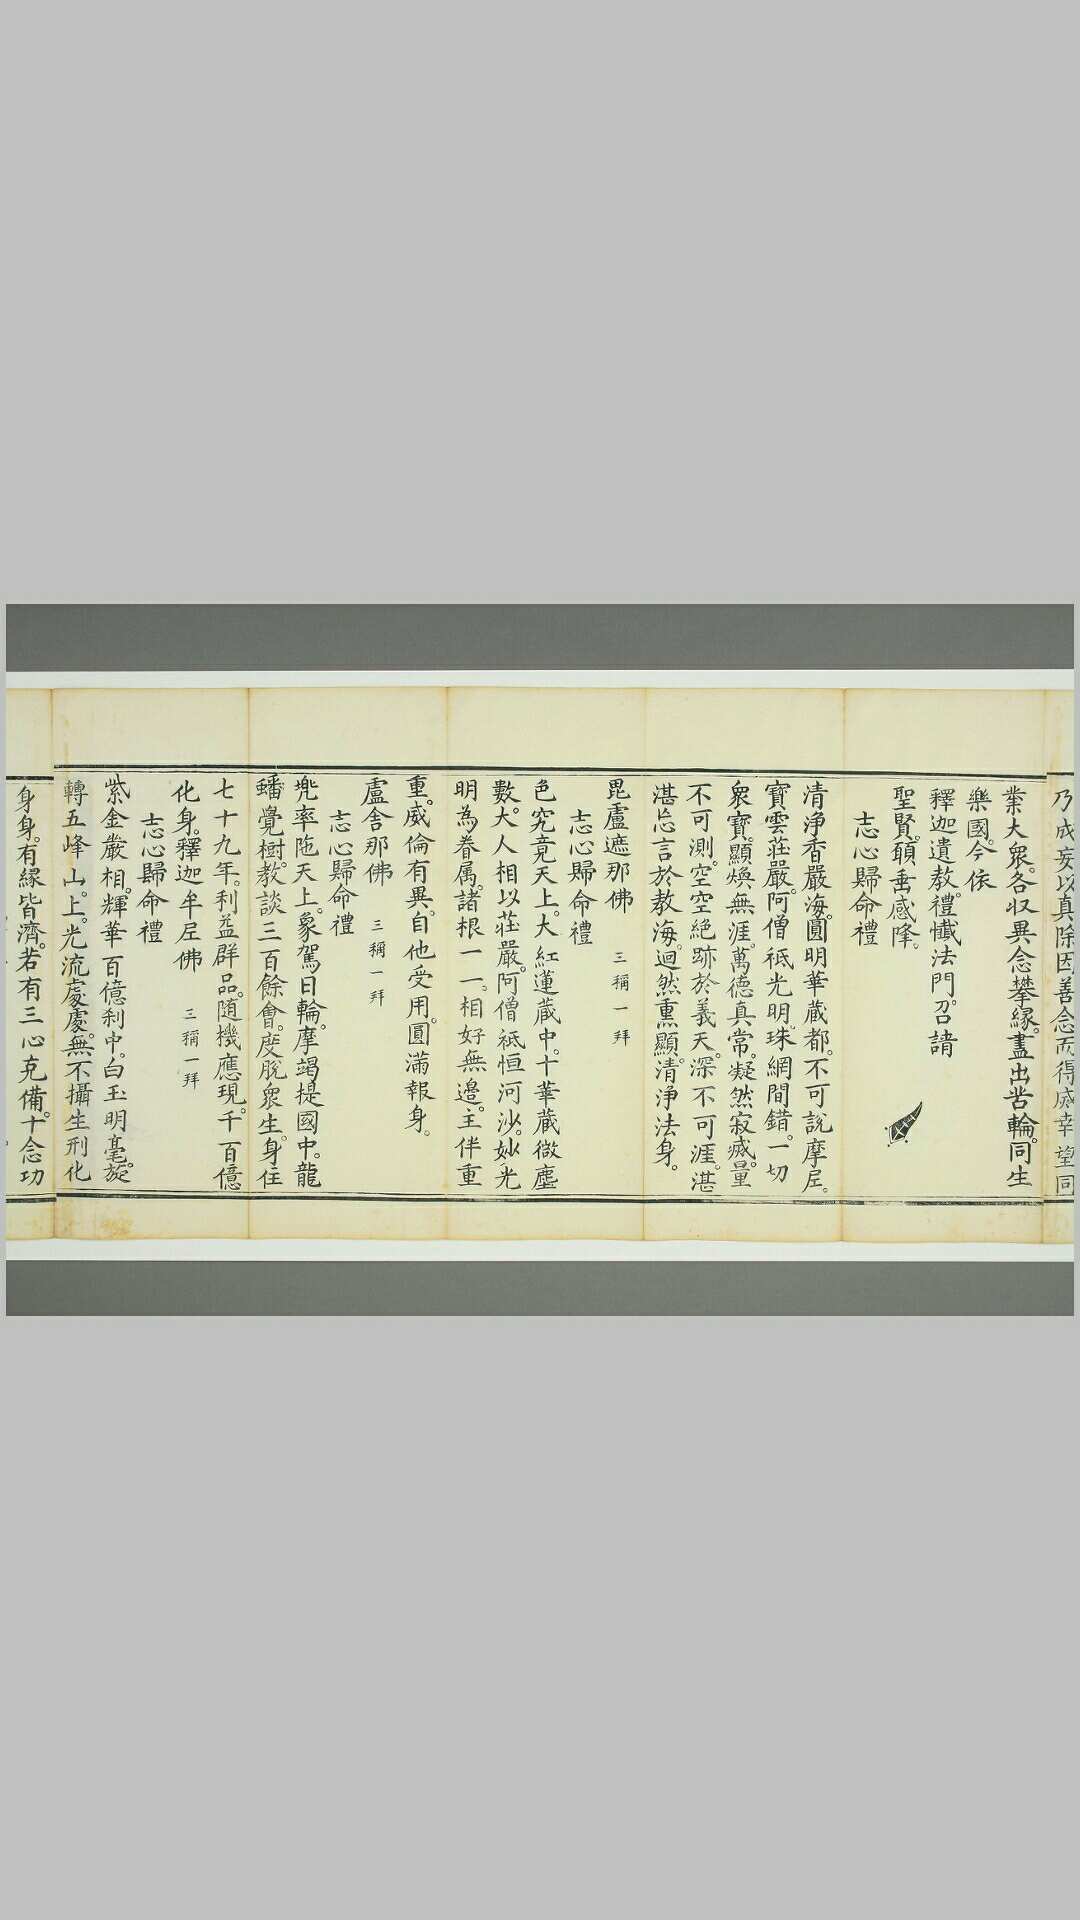 乃成妄以真除因善念而得感幸望同
業大衆。各収異念攀緣。盡出苦輪。同生
樂國。今依
釋迦遺教。禮懴法門。召請
聖賢。頋垂感降。
志心歸命禮
清淨香嚴海。圓明華蔵都。不可說摩尼。
寶雲莊嚴。阿僧祇光明。珠網間錯。一切
衆寶。顯煥無涯。萬德真常。凝然寂滅。量
不可測。空空絶跡於義天。深不可涯。湛
湛忘言於教海。迴然熏顯。清淨法身。
毘盧遮那佛 三稱一拜
志心歸命禮
色究竟天上。大紅蓮蔵中。十華蔵微塵
數。大人相以莊嚴。阿僧祇恒河沙。妙光
明為眷属。諸根一一。相好無邉。主伴重
重。威倫有異。自他受用。圓滿報身。
盧舍那佛 三稱一拜
志心歸命禮
兠率陁天上。象駕日輪。摩竭提國中。龍
蟠覺樹。教談三百餘會。度脫衆生。身住
七十九年。利益群品。随機應現。千百億
化身。釋迦牟尼佛 三稱一拜
志心歸命禮
紫金嚴相。輝華百億刹中。白玉明毫。旋
轉五峰山。上。光流處處。無不攝生。形化
身身。有緣皆濟。若有三心克備。十念功